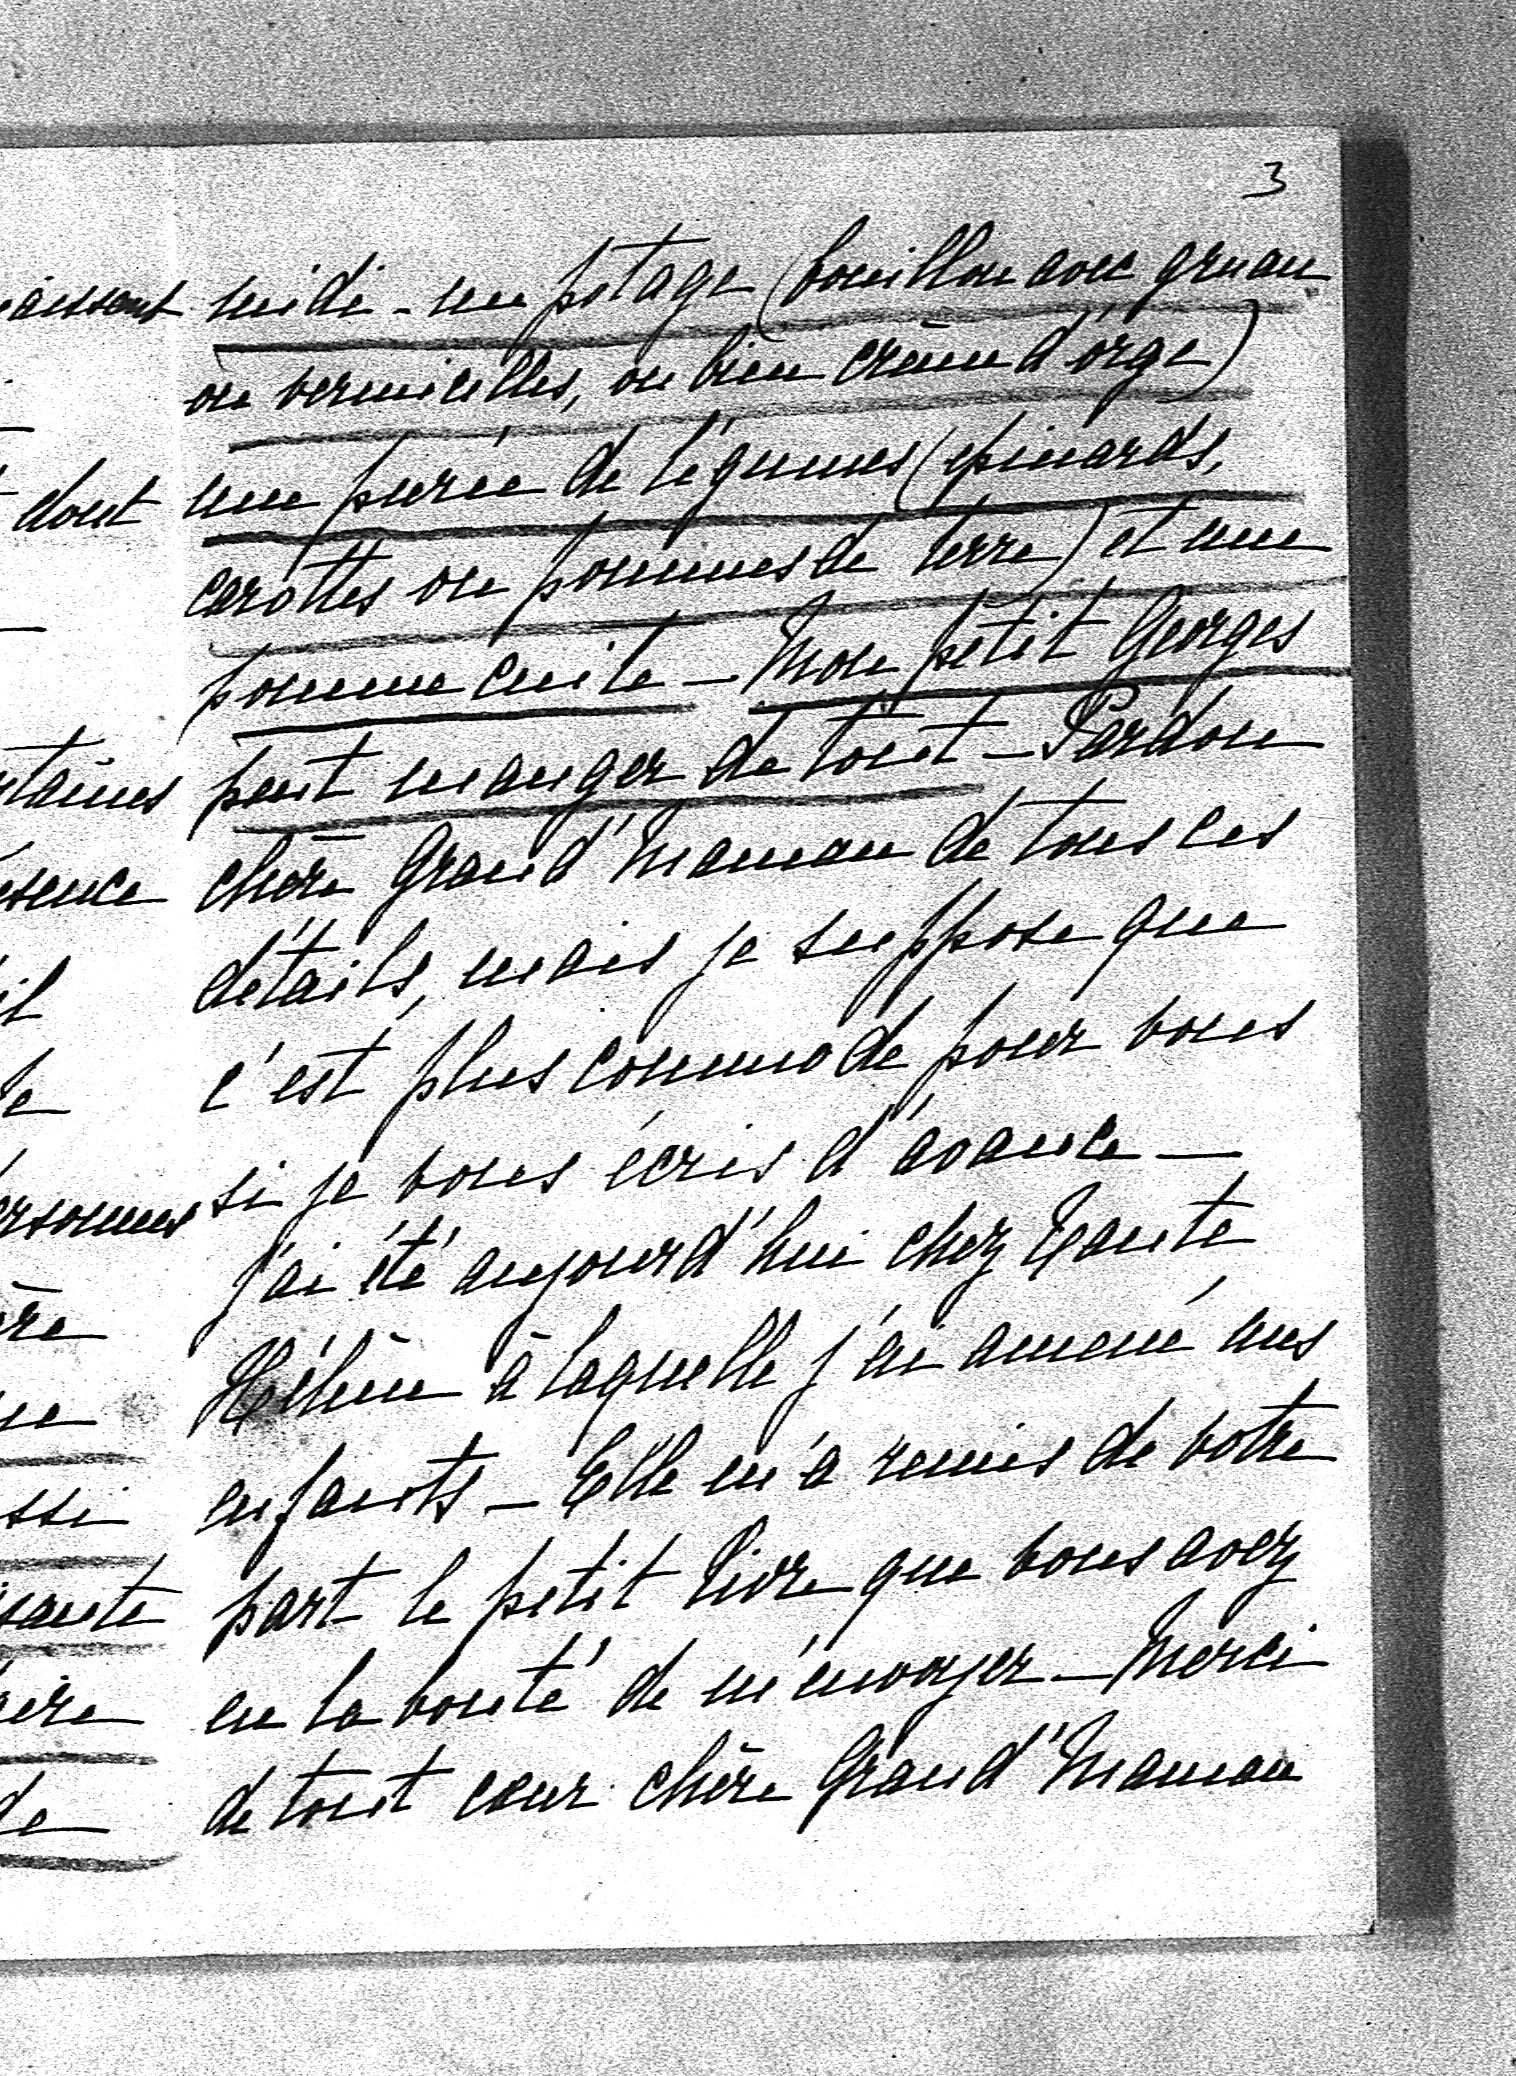 3
midi - un potage (bouillon avec gruau
ou vermicelles, ou bien crème d'orge)
une purée de légumes (épinards,
carottes ou pommes de terre) et une
pomme cuite - Mon petit Georges
peut manger de tout - Pardon
chère Grand'Maman de tous ces
détails, mais je suppose que
c'est plus commode pour vous
si je vous écris d'avance -
J'ai été aujourd'hui chez Tante
Hélène à laquelle j'ai amené mes
enfants - Elle m'a remis de votre
part le petit livre que vous avez
eu la bonté de m'envoyer - Merci
de tout cœur chère Grand'Maman
aissent
dont
taines
sence
il
ersonnes
ère
ssi
sante
de